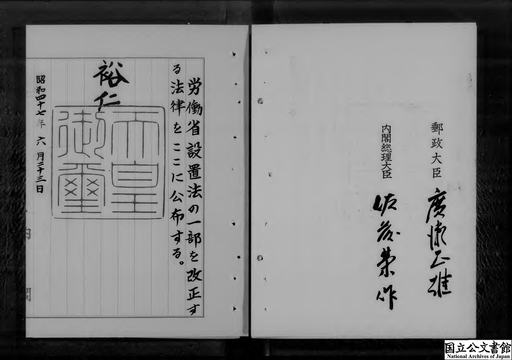 郵政大臣 廣瀬正雄
内閣総理大臣 佐藤榮作
労働省設置法の一部を改正す
る法律をここに公布する。
裕仁
天皇
御璽
昭和四十七年六月二十三日
国立公文書館
National Archives of Japan